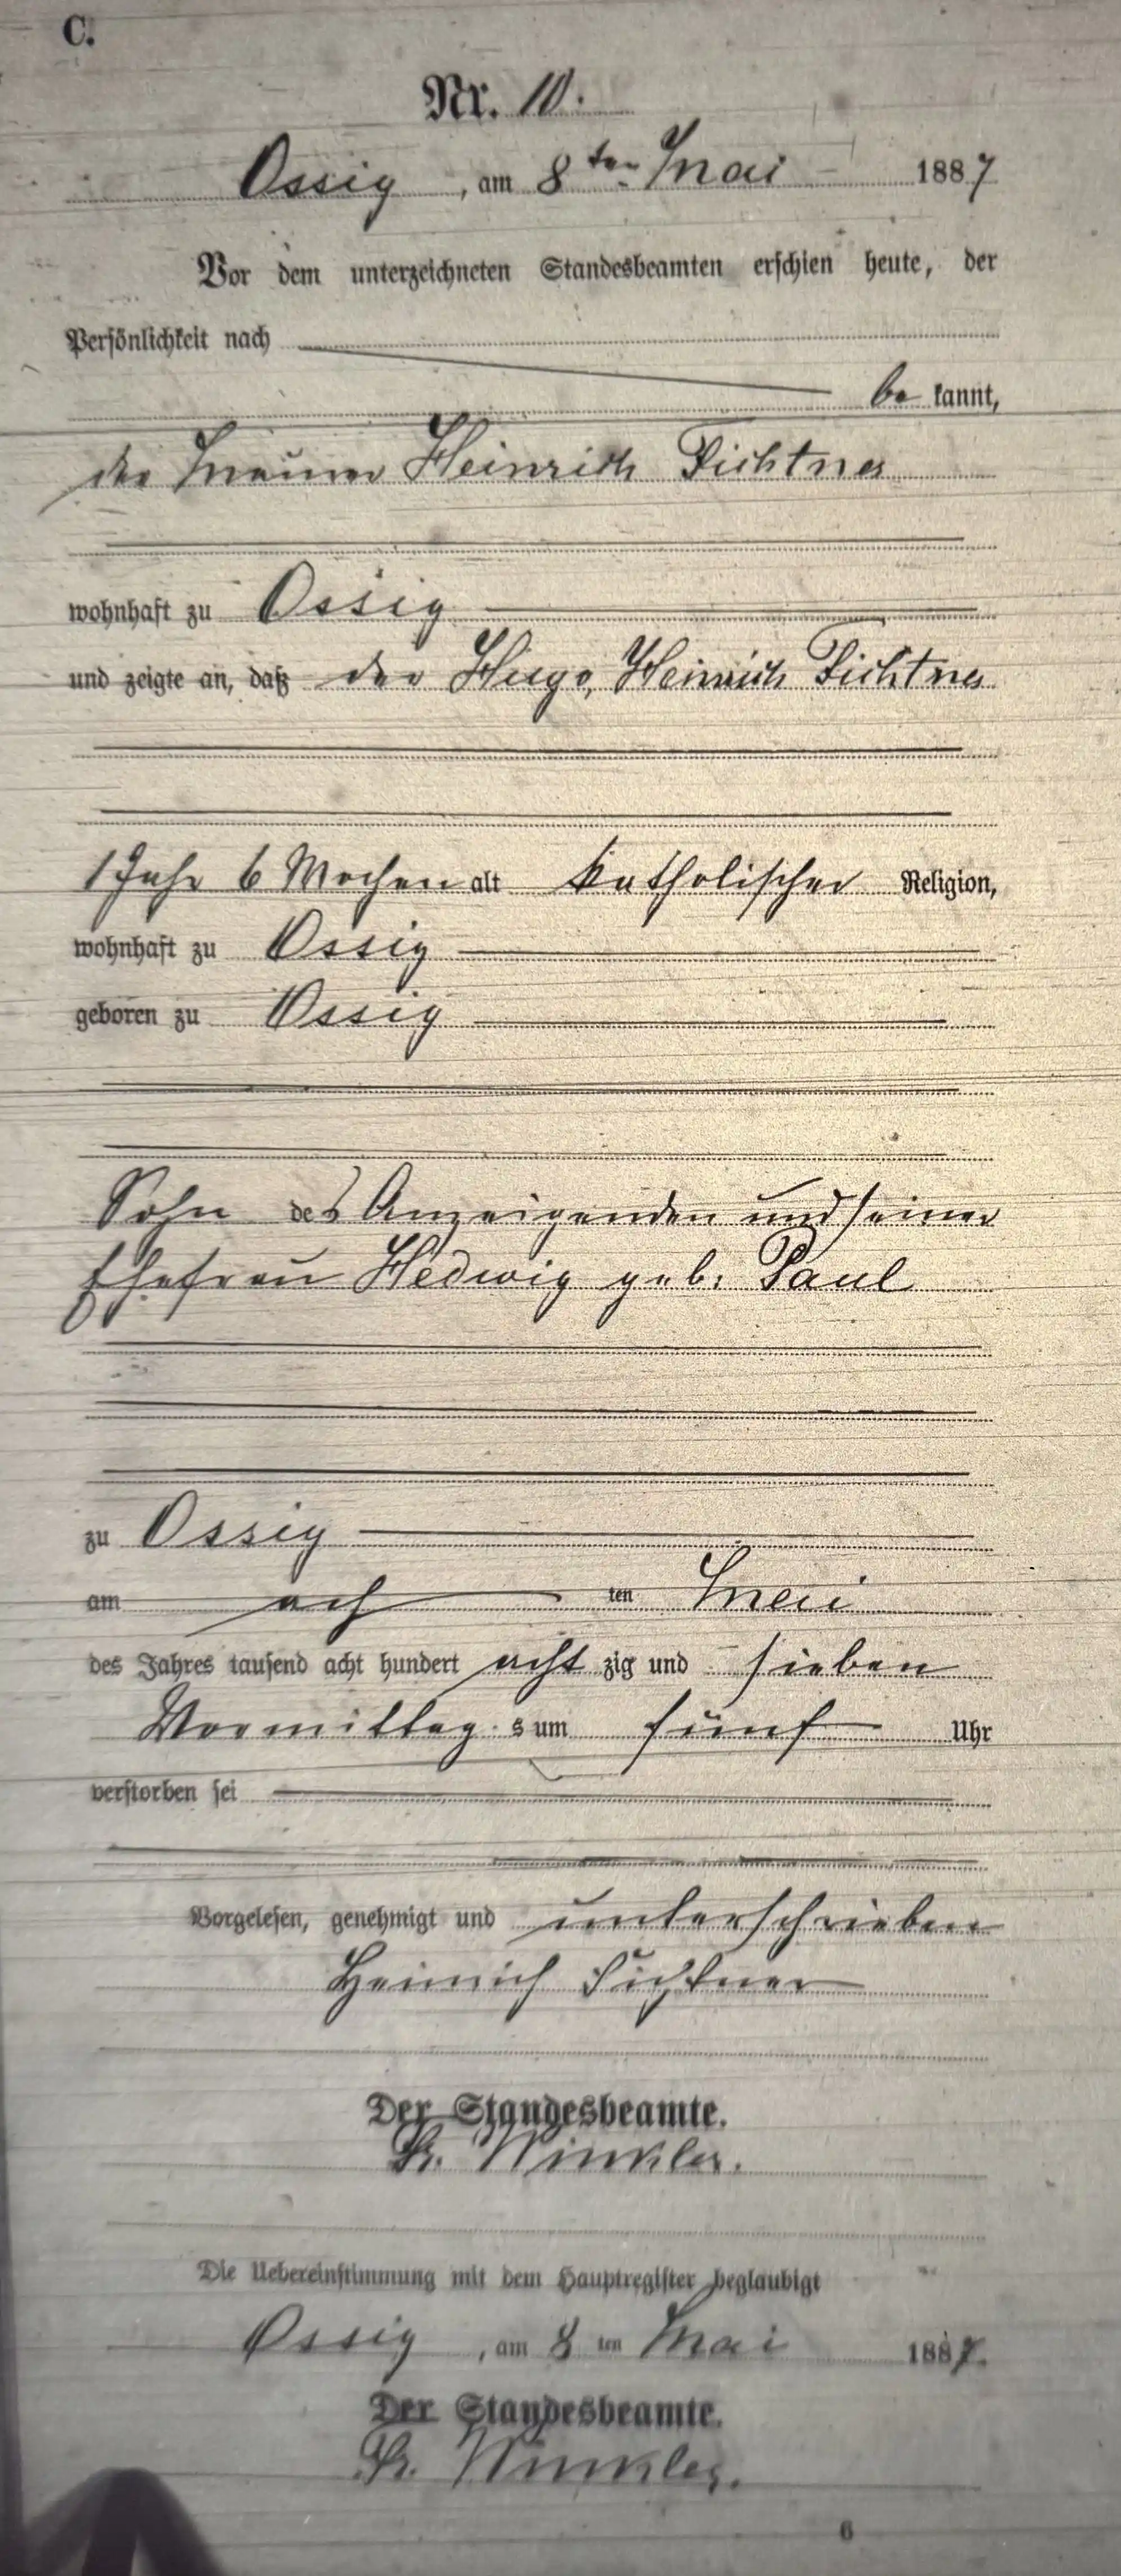 C.
Nr. 10.
Ossig, am 8ten Mai 1887
Vor dem unterzeichneten Standesbeamten erschien heute, der
Persönlichkeit nach
be kannt,
der Maurer Heinrich Fichtner
wohnhaft zu Ossig
und zeigte an, daß der Hugo, Heinrich Fichtner
1 Jahr 6 Wochen alt katholischer Religion,
wohnhaft zu Ossig
geboren zu Ossig
Sohn des Anzeigenden und seiner
Ehefrau Hedwig geb. Paul
zu Ossig
am ach ten Mai
des Jahres tausend acht hundert acht zig und sieben
Vormittag s um fünf Uhr
verstorben sei
Vorgelesen, genehmigt und unterschrieben
Heinrich Fichtner
Der Standesbeamte.
Fr. Winkler.
Die Uebereinstimmung mit dem Hauptregister beglaubigt
Ossig, am 8 ten Mai 1887.
Der Standesbeamte.
Fr. Winkler.
6